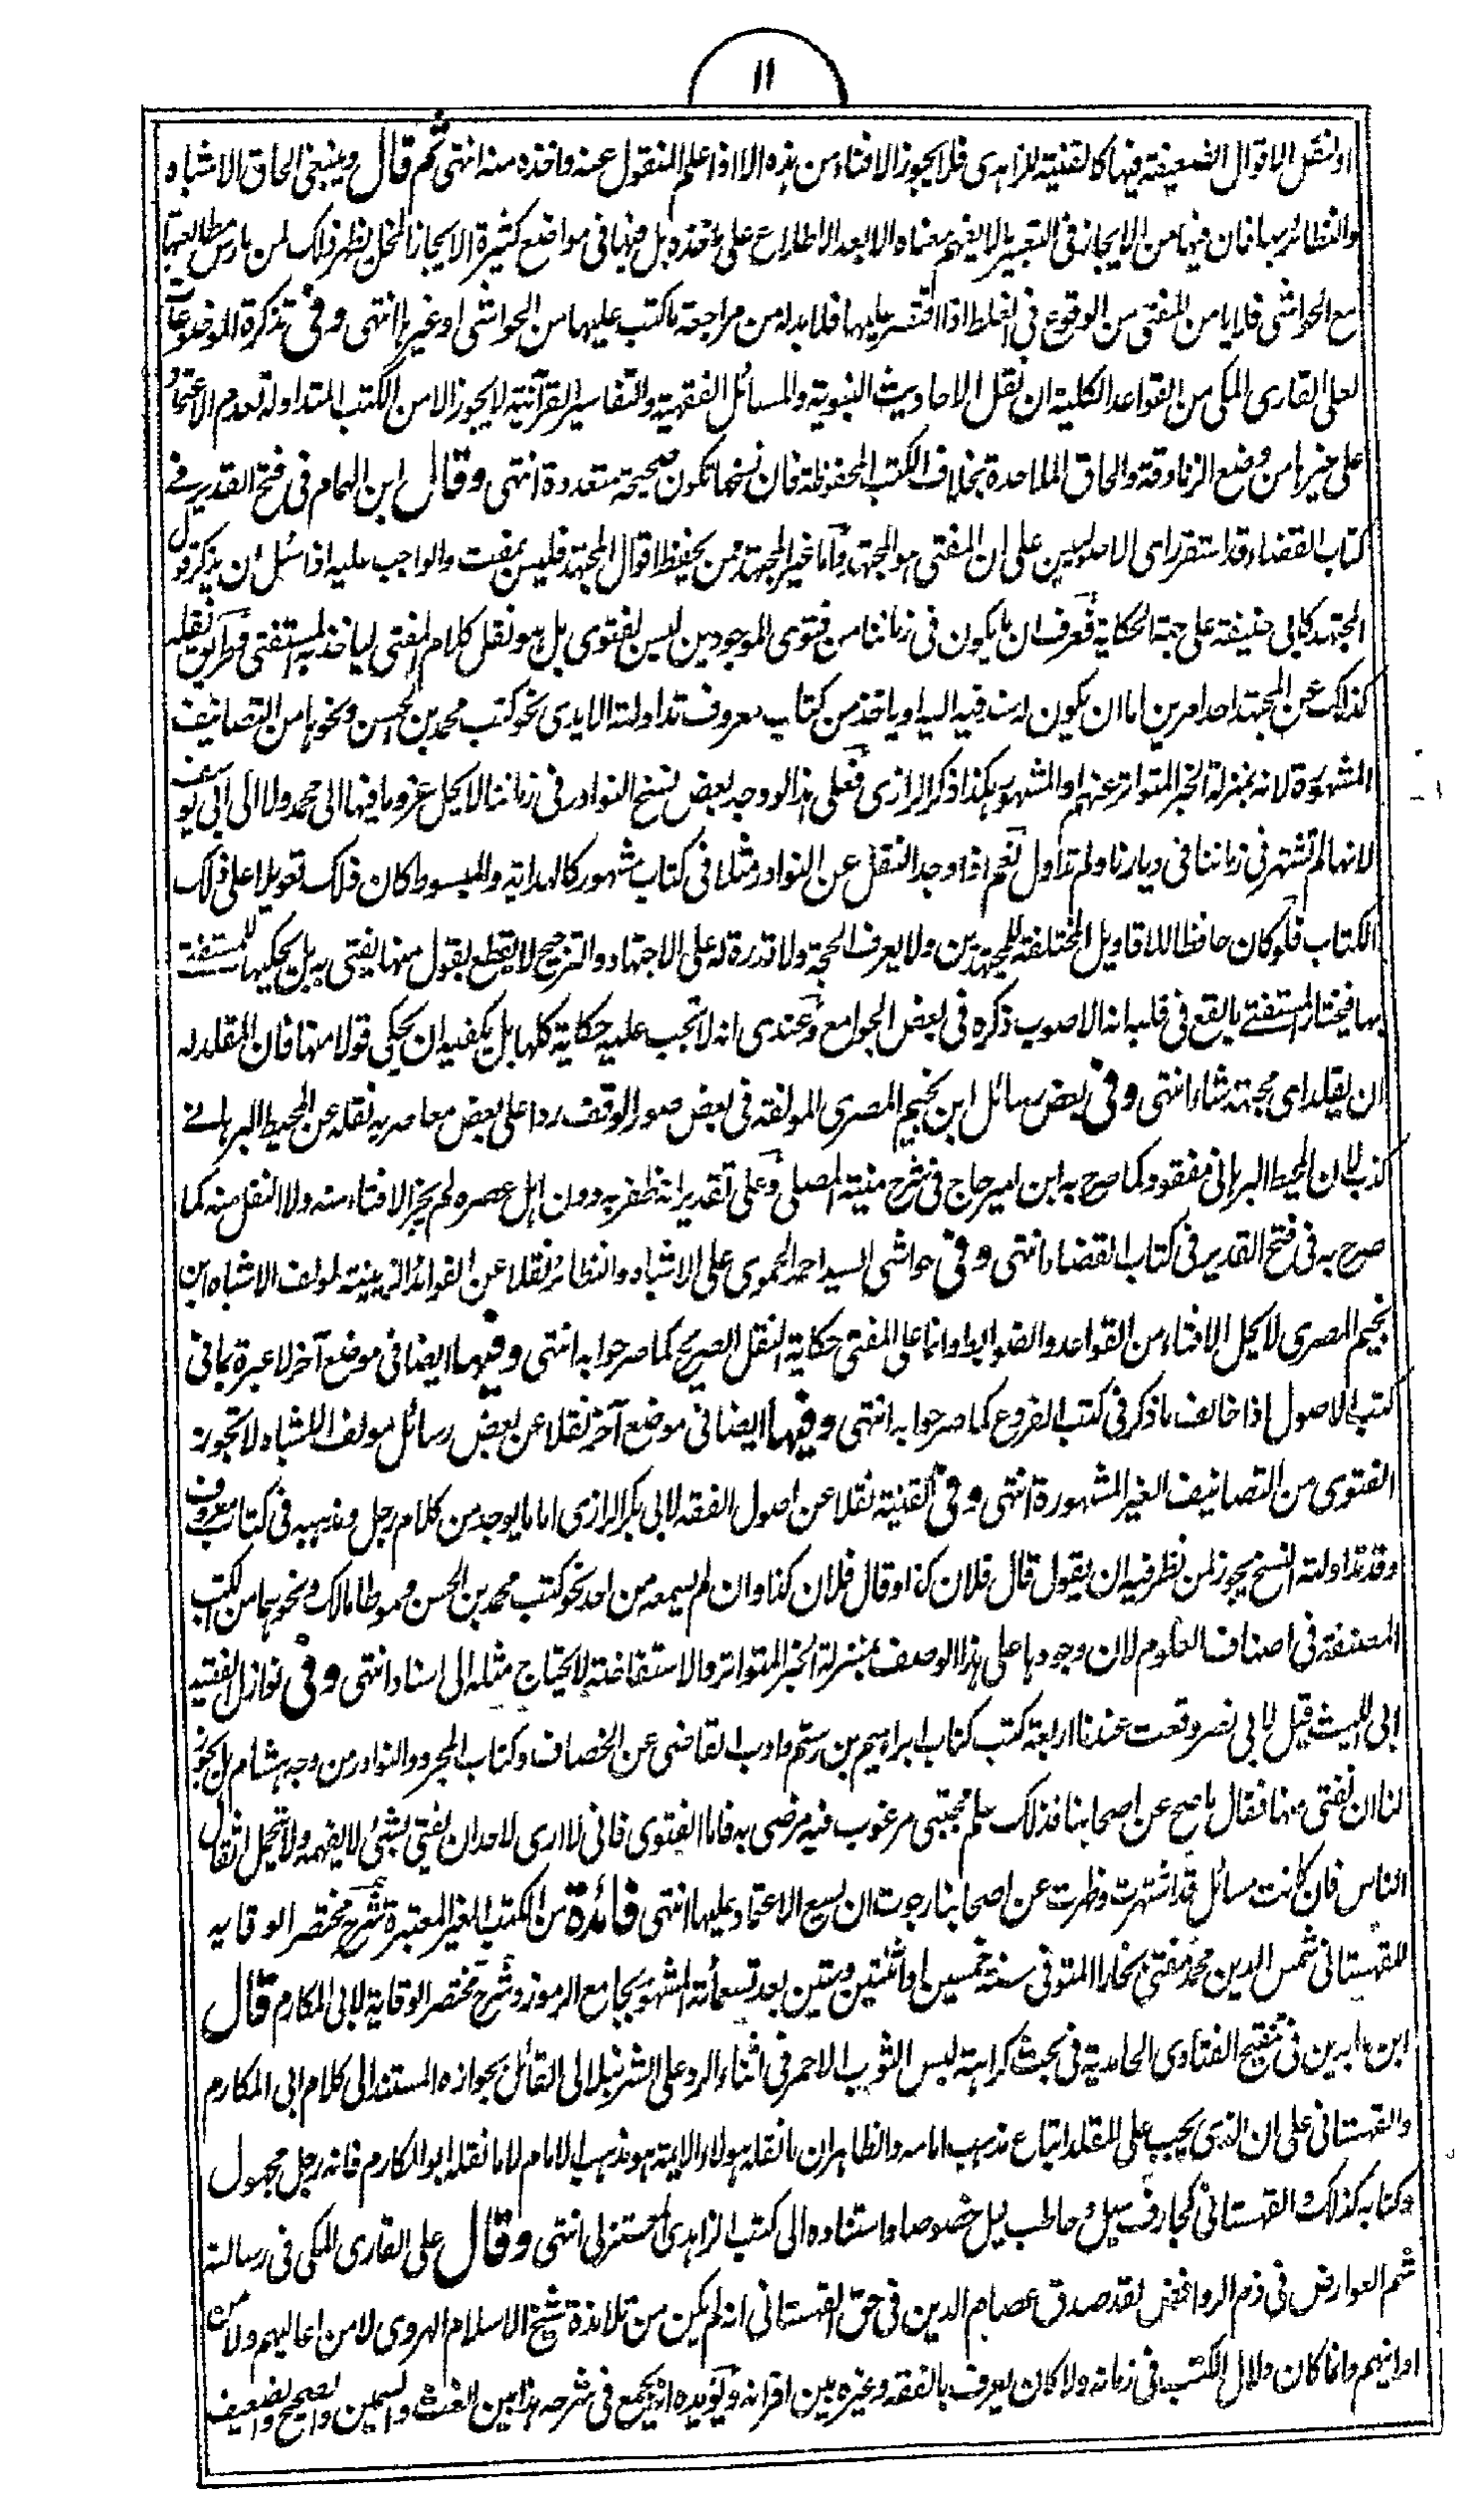 ۱۱
او لنقل الاقوال الضعيفة فيها كالقنية للزاهدى فلا يجوز الافتاء من هذه الا اذا علم المنقول عنه واخذه منه انتهى ثم قال وينبغى الحاق الاشباه
والنظائر بها فان فيها من الايجاز فى التعبير ما لا يفهم معناه الا بعد الاطلاع على ماخذه بل فيها فى مواضع كثيرة الايجاز المخل يظهر ذلك لمن مارس مطالعتها
مع الحواشى فلا يامن المفتى من الوقوع فى الغلط اذا اقتصر عليها فلا بد له من مراجعة ما كتب عليها من الحواشى او غيرها انتهى وفى تذكرة الموضوعات
لعلى القارى المكى من القواعد الكلية ان نقل الاحاديث النبوية والمسائل الفقهية والتفاسير القرآنية لا يجوز الا من الكتب المتداولة لعدم الاعتماد
على غيرها من وضع الزنادقة والحاق الملاحدة بخلاف الكتب المحفوظة فان نسخها تكون صحيحة متعددة انتهى وقال ابن الهمام فى فتح القدير فے
كتاب القضاء قد استقر راى الاصوليين على ان المفتى هو المجتهد واما غير المجتهد ممن يحفظ اقوال المجتهد فليس بمفت والواجب عليه اذا سئل ان يذكر قول
المجتهد كابى حنيفة على جهة الحكاية فعرف ان ما يكون فى زماننا من فتوى الموجودين ليس بفتوى بل هو نقل كلام المفتى لياخذ به المستفتى وطريق نقله
كذلك عن المجتهد احد امرين اما ان يكون له سند فيه اليه او ياخذ من كتاب معروف تداولته الايدى نحو كتب محمد بن الحسن ونحوها من التصانيف
المشهورة لانه بمنزلة الخبر المتواتر عنهم او المشهور هكذا ذكر الرازى فعلى هذا لو وجد بعض نسخ النوادر فى زماننا لا يحل عزو ما فيها الى محمد ولا الى ابى يوسف
لانها لم تشتهر فى زماننا فى ديارنا ولم تتداول نعم اذا وجد النقل عن النوادر مثلا فى كتاب مشهور كالهداية والمبسوط كان ذلك تعويلا على ذلك
الكتاب فلو كان حافظا للاقاويل المختلفة للمجتهدين ولا يعرف الحجة ولا قدرة له على الاجتهاد والترجيح لا يقطع بقول منها يفتى به بل يحكيها للمستفتے
بها فيختار المستفتے ما يقع فى قلبه انه الاصوب ذكره فى بعض الجوامع وعندى انه لا تجب عليه حكاية كلها بل يكفيه ان يحكى قولا منها فان المقلد له
ان يقلد اى مجتهد شاء انتهى وفى بعض رسائل ابن نجيم المصرى المولفة فى بعض صور الوقف ردا على بعض معاصريه نقله عن المحيط البرهانے
كذب لان المحيط البرهانى مفقود كما صرح به ابن امير حاج فى شرح منية المصلى وعلى تقدير انه ظفر به دون اهل عصره لم يجز الافتاء منه ولا النقل منه كما
صرح به فى فتح القدير فى كتاب القضاء انتهى وفى حواشى السيد احمد الحموى على الاشباه والنظائر نقلا عن الفوائد الزينية لمولف الاشباه ابن
نجيم المصرى لا يحل الافتاء من القواعد والضوابط وانما على المفتى حكاية النقل الصريح كما صرحوا به انتهى وفيها ايضا فى موضع آخر لا عبرة بما فى
كتب الاصول اذا خالف ما ذكر فى كتب الفروع كما صرحوا به انتهى وفيها ايضا فى موضع آخر نقلا عن بعض رسائل مولف الاشباه لا تجوز
الفتوى من التصانيف الغير المشهورة انتهى وفى القنية نقلا عن اصول الفقه لابى بكر الرازى اما ما يوجد من كلام رجل ومذهبه فى كتاب معروف
وقد تداولته النسخ يجوز لمن نظر فيه ان يقول قال فلان كذا وقال فلان كذا وان لم يسمعه من احد نحو كتب محمد بن الحسن وموطا مالك ونحوهما من الكتب
المصنفة فى اصناف العلوم لان وجودها على هذا الوصف بمنزلة الخبر المتواتر والاستفاضة لا يحتاج مثله الى اسناد انتهى وفى نوازل الفقيه
ابى الليث قيل لابى نصر وقعت عندنا اربعة كتب كتاب ابراهيم بن رستم وادب القاضى عن الخصاف وكتاب المجرد والنوادر من وجه هشام هل يجوز
لنا ان نفتى منها فقال ما صح عن اصحابنا فذلك علم مجتبى مرغوب فيه مرضى به فاما الفتوى فانى لا ارى لاحد ان يفتى بشئ لا يفهمه ولا يتحمل اثقال
الناس فان كانت مسائل قد اشتهرت وظهرت عن اصحابنا رجوت ان يسع الاعتماد عليها انتهى فائدة من الكتب الغير المعتبرة شرح مختصر الوقايه
للقهستانى شمس الدين محمد مفتى بخارا المتوفى سنة خمسين او اثنتين وستين بعد تسعمائة المشهور بجامع الرموز وشرح مختصر الوقاية لابى المكارم قال
ابن عابدين فى تنقيح الفتاوى الحامدية فى بحث كراهية لبس الثوب الاحمر فى اثناء الرد على الشرنبلالى القائل بجوازه المستند الى كلام ابى المكارم
والقهستانى على ان الذى يجب على المقلد اتباع مذهب امامه والظاهر ان ما نقله هولاء الايمة هو مذهب الامام لا ما نقله ابو المكارم فانه رجل مجهول
وكتابه كذلك والقهستانى كجارف سيل وحاطب ليل خصوصا واستناده الى كتب الزاهدى المعتزلى انتهى وقال على القارى المكى فى رسالته
شم العوارض فى ذم الروافض لقد صدق عصام الدين فى حق القهستانى انه لم يكن من تلامذة شيخ الاسلام الهروى لا من اعاليهم ولا من
ادانيهم وانما كان دلال الكتب فى زمانه ولا كان يعرف بالفقه وغيره بين اقرانه ويؤيده انه يجمع فى شرحه هذا بين الغث والسمين والصحيح والضعيف